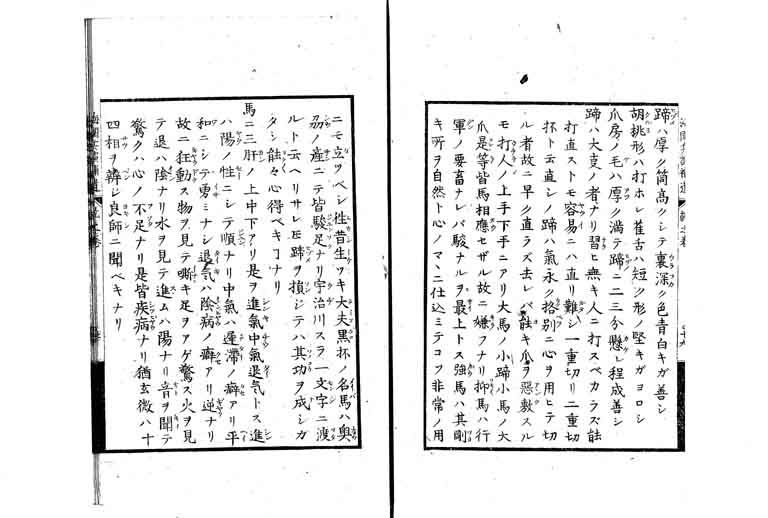 蹄ハ厚ク筒高クシテ裏深ク色青白キガ善シ
胡桃形ハ打ホレ萑舌ハ短ク形ノ堅キガヨロシ
爪房ノ毛ハ厚ク満テ蹄ニ二三分懸レ程成善シ
蹄ハ大支ノ者ナリ習ヒ無キ人ニ打スベカラズ詿
打直ストモ容易ニハ直リ難シ一重切リ二重切
杯ト云直シノ蹄ハ氣永ク挌別ニ心ヲ用ヒテ切
ル者故ニ早ク直ラズ去レバ能キ爪ヲ惡敷スル
モ打人ノ上手下手ニアリ大馬ノ小蹄小馬ノ大
爪是等皆馬相應セザル故ニ嫌フナリ抑馬ハ行
軍ノ要畜ナレバ駿ナルヲ最上トス強馬ハ其剛
キ所ヲ自然ト心ノマヽニ仕込ミテコソ非常ノ用
ニモ立ツベシ徃昔生ツキ大夫黒杯ノ名馬ハ奥
刕ノ産ニテ皆駿足ナリ宇治川スラ一文字ニ渡
ルト云ヘリサレ𪜈蹄ヲ損ジテハ其功ヲ成シガ
タシ能々心得ベキヿナリ
馬ニ三肝ノ上中下アリ是ヲ進氣中氣退气トス進
ハ陽ノ性ニシテ順ナリ中氣ハ遲滞ノ癖アリ平
和ニシテ勇ミナシ退气ハ陰病ノ癖アリ逆ナリ
故ニ狂動ス物ヲ見テ嘶キ足ヲアゲ驚ス火ヲ見
テ退ハ陰ナリ水ヲ見テ進ムハ陽ナリ音ヲ聞テ
驚クハ心ノ不足ナリ是皆疾病ナリ猶玄微ハ十
四相ヲ辨レ良師ニ聞ベキナリ